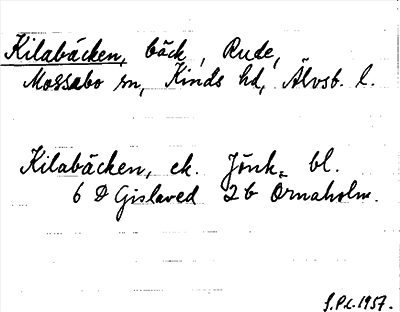 Kilabäcken, bäck, Rude,
Mossebo sn, Kinds hd, Älvsb. l.
Kilabäcken, ek. Jönk. bl.
6 D Gislaved 2 b Ornaholm.
S.P.L. 1957.